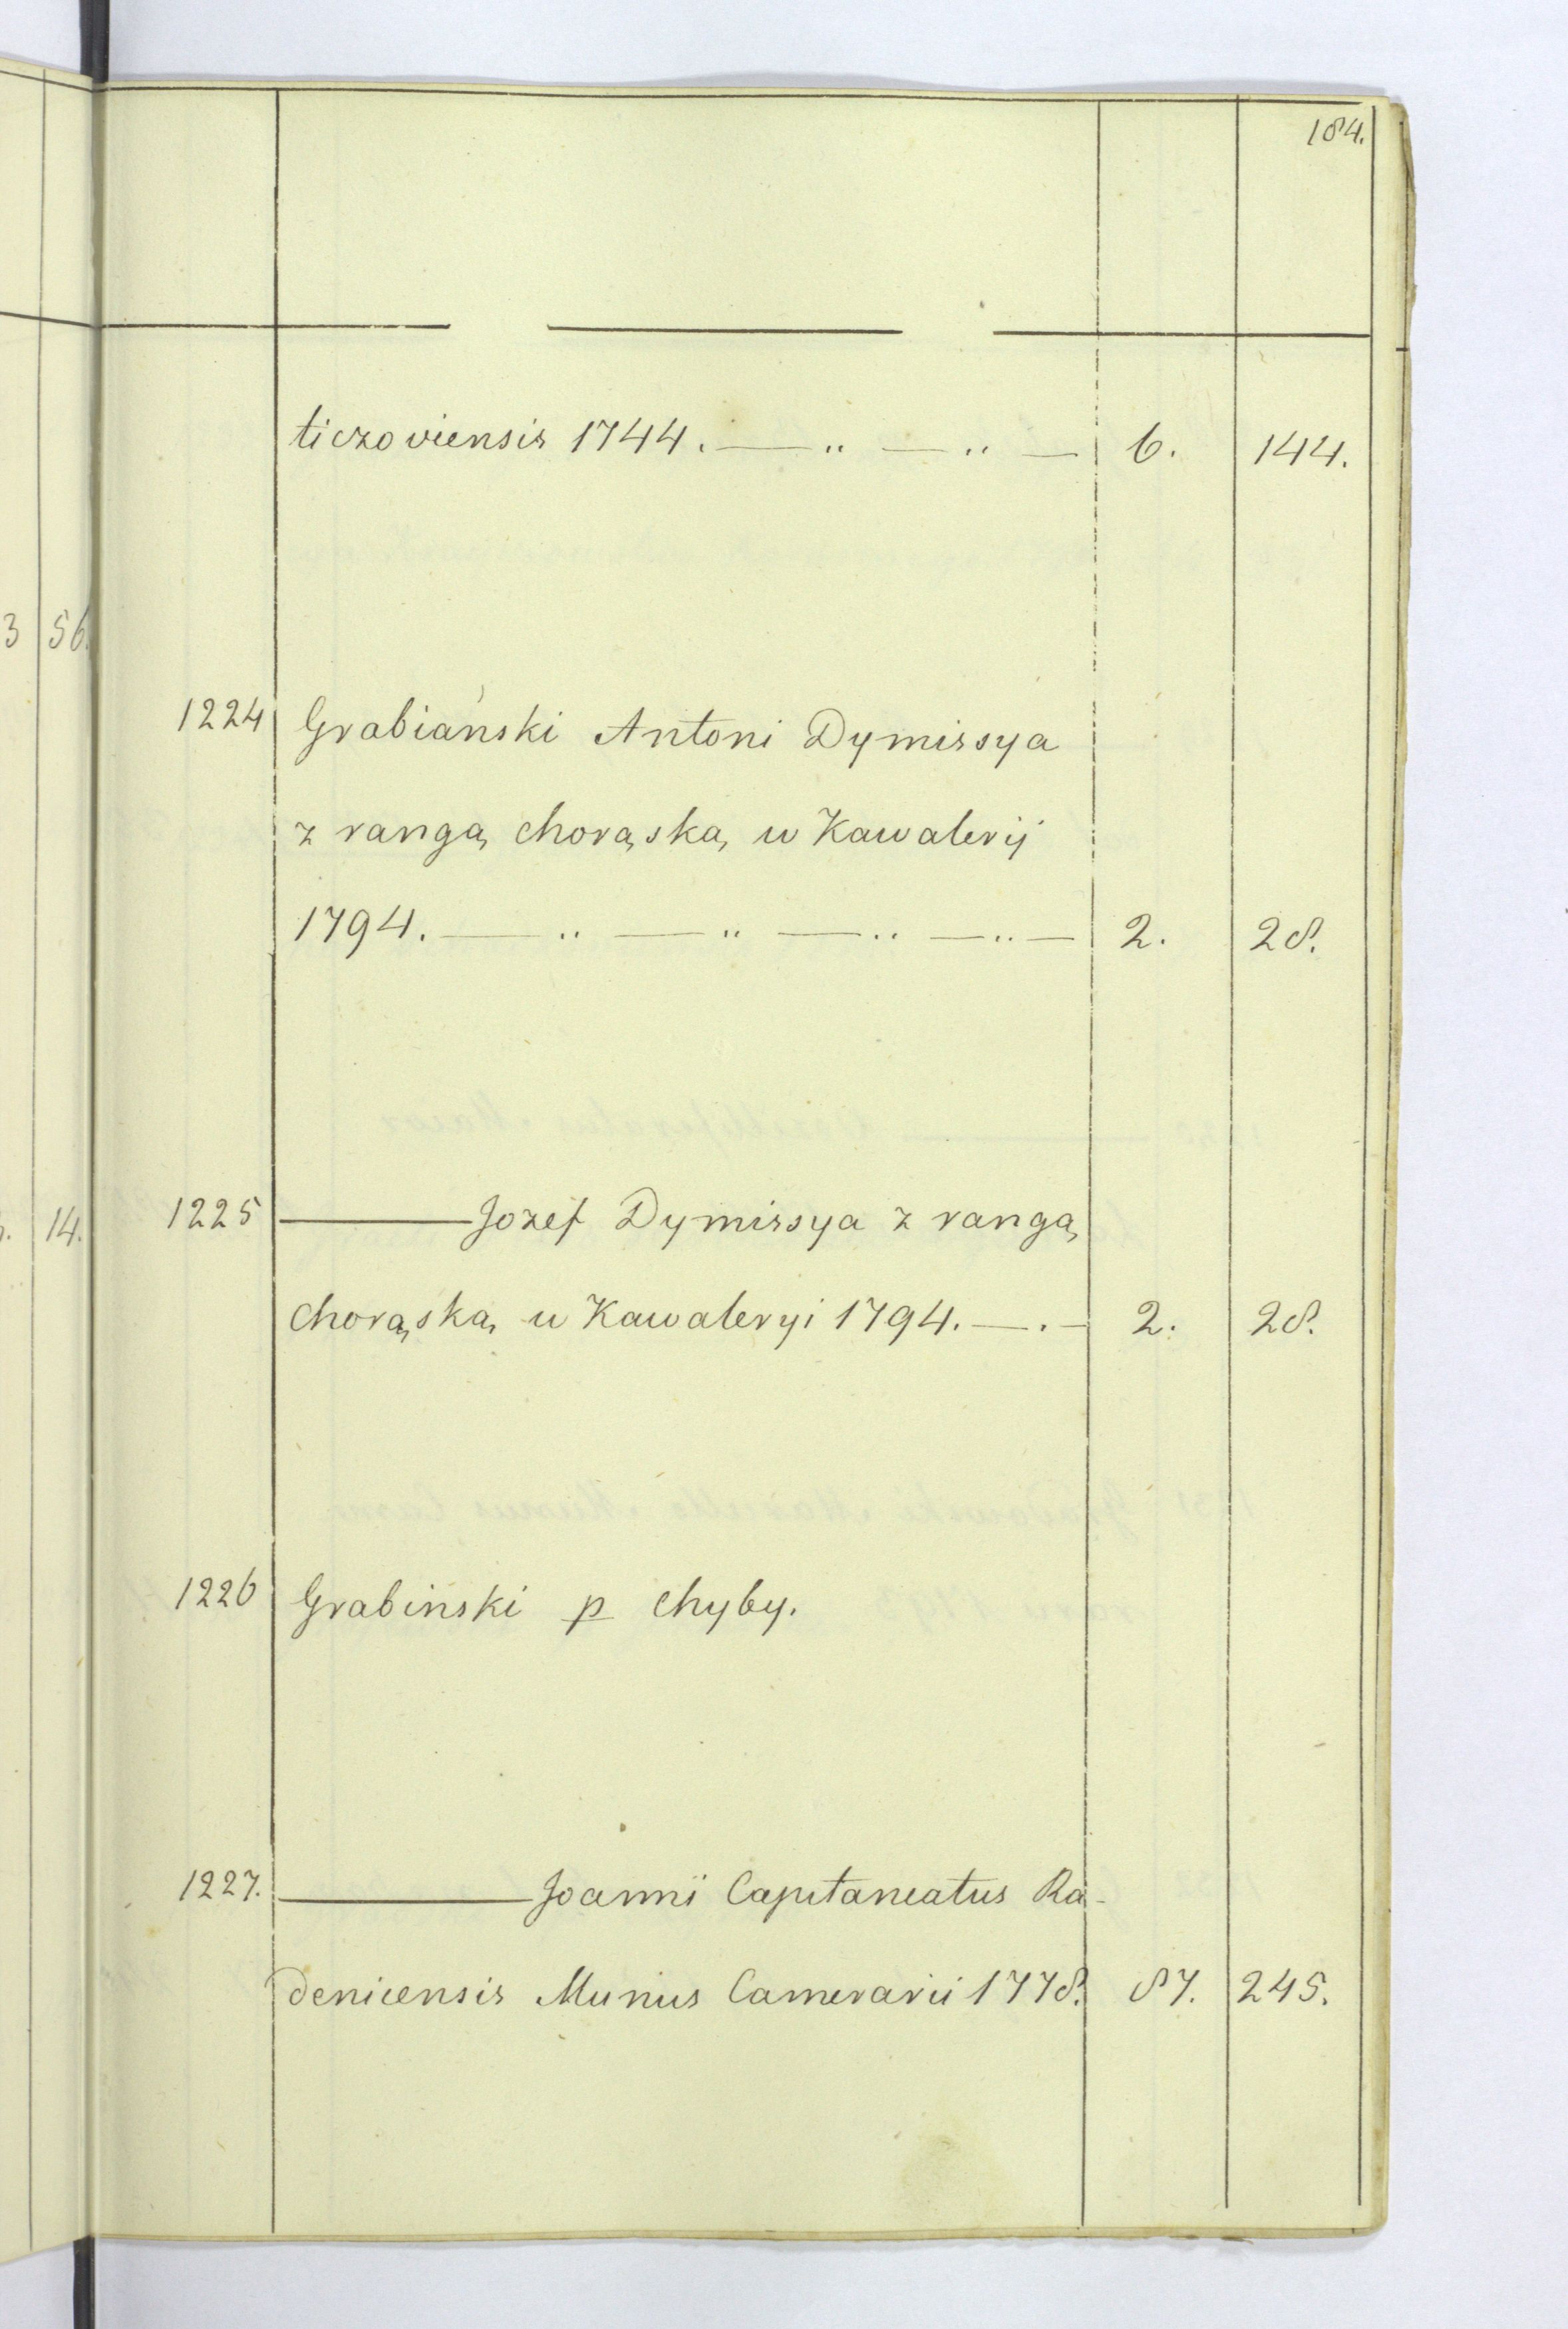 184.
ticzoviensis 1744. — " — " — 6. 144.
3 56.
1224 Grabiański Antoni Dymissya
z rangą chorąską w Kawaleryi
1794. — " — " — " — " — 2. 28.
14. 1225 — Jozef Dymissya z rangą
chorąską w Kawaleryi 1794. — . — 2. 28.
1226 Grabinski p chyby.
1227. — Joanni Capitaneatus Ra-
denicensis Munus Camerarii 1778. 87. 245.